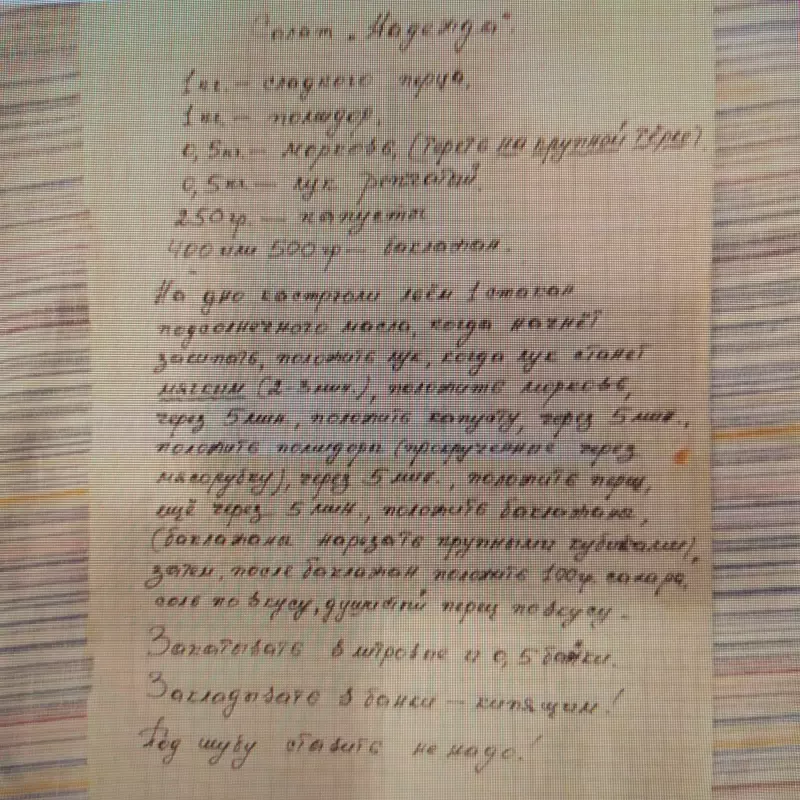 Салат „Надежда".
1 кг. – сладкого перца,
1 кг. – помидор,
0,5 кг. – морковь, (тереть на крупной тёрке).
0,5 кг – лук репчатый.
250 гр. – капусты
400 или 500 гр – баклажан.
На дно кастрюли льём 1 стакан
подсолнечного масла, когда начнёт
закипать, положить лук, когда лук станет
мягким (2-3 мин.), положить морковь,
через 5 мин., положить капусту, через 5 мин.,
положить помидоры (прокрученные через
мясорубку), через 5 мин., положить перец,
ещё через 5 мин., положить баклажаны,
(баклажаны нарезать крупными кубиками),
затем, после баклажан положить 100 гр. сахара,
соль по вкусу, душистый перец по вкусу.
Закатывать в литровые и 0,5 банки.
Закладывать в банки – кипящим!
Под шубу ставить не надо!